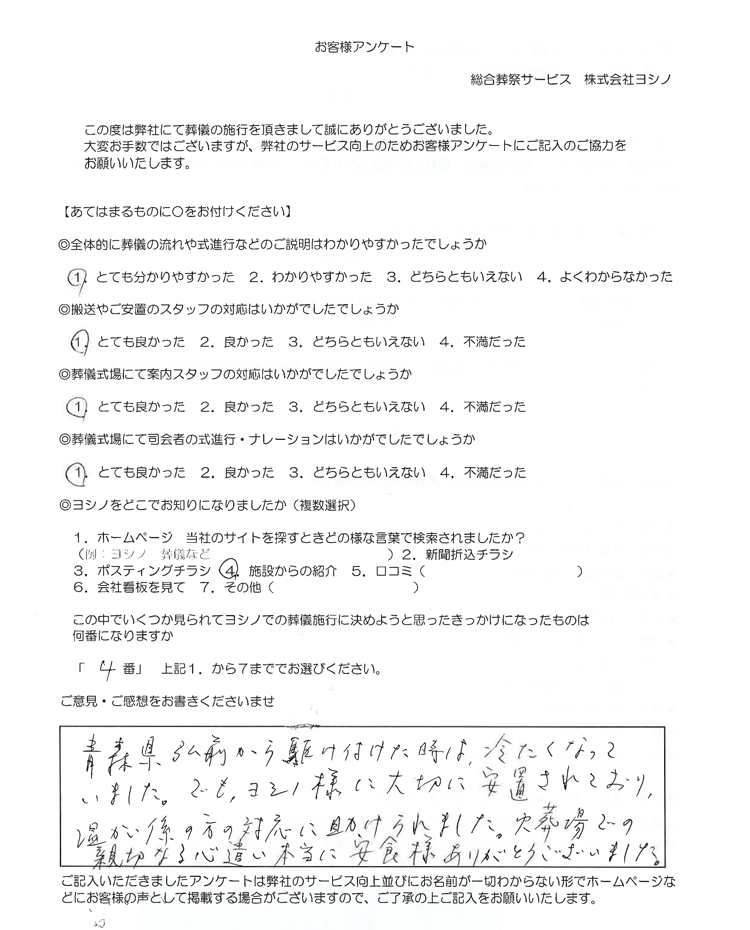 お客様アンケート
総合葬祭サービス　株式会社ヨシノ
この度は弊社にて葬儀の施行を頂きまして誠にありがとうございました。
大変お手数ではございますが、弊社のサービス向上のためお客様アンケートにご記入のご協力を
お願いいたします。
【あてはまるものに〇をお付けください】
◎全体的に葬儀の流れや式進行などのご説明はわかりやすかったでしょうか
1．とても分かりやすかった　2．わかりやすかった　3．どちらともいえない　4．よくわからなかった
◎搬送やご安置のスタッフの対応はいかがでしたでしょうか
1．とても良かった　2．良かった　3．どちらともいえない　4．不満だった
◎葬儀式場にて案内スタッフの対応はいかがでしたでしょうか
1．とても良かった　2．良かった　3．どちらともいえない　4．不満だった
◎葬儀式場にて司会者の式進行・ナレーションはいかがでしたでしょうか
1．とても良かった　2．良かった　3．どちらともいえない　4．不満だった
◎ヨシノをどこでお知りになりましたか（複数選択）
1．ホームページ　当社のサイトを探すときどの様な言葉で検索されましたか？
（例：ヨシノ　葬儀など　　　　　　　　　　　　　　）2．新聞折込チラシ
3．ポスティングチラシ　4．施設からの紹介　5．口コミ（　　　　　　　　　　　　）
6．会社看板を見て　7．その他（　　　　　　　　　　　）
この中でいくつか見られてヨシノでの葬儀施行に決めようと思ったきっかけになったものは
何番になりますか
「　4　番」　上記1．から7まででお選びください。
ご意見・ご感想をお書きくださいませ
青森県、弘前から駆け付けた時は、冷たくなって
いました。でも、ヨシノ様に大切に安置されており、
温かい係の方の対応に助けられました。火葬場での
親切なる心遣い本当に安食様ありがとうございました。
ご記入いただきましたアンケートは弊社のサービス向上並びにお名前が一切わからない形でホームページな
どにお客様の声として掲載する場合がございますので、ご了承の上ご記入をお願いいたします。